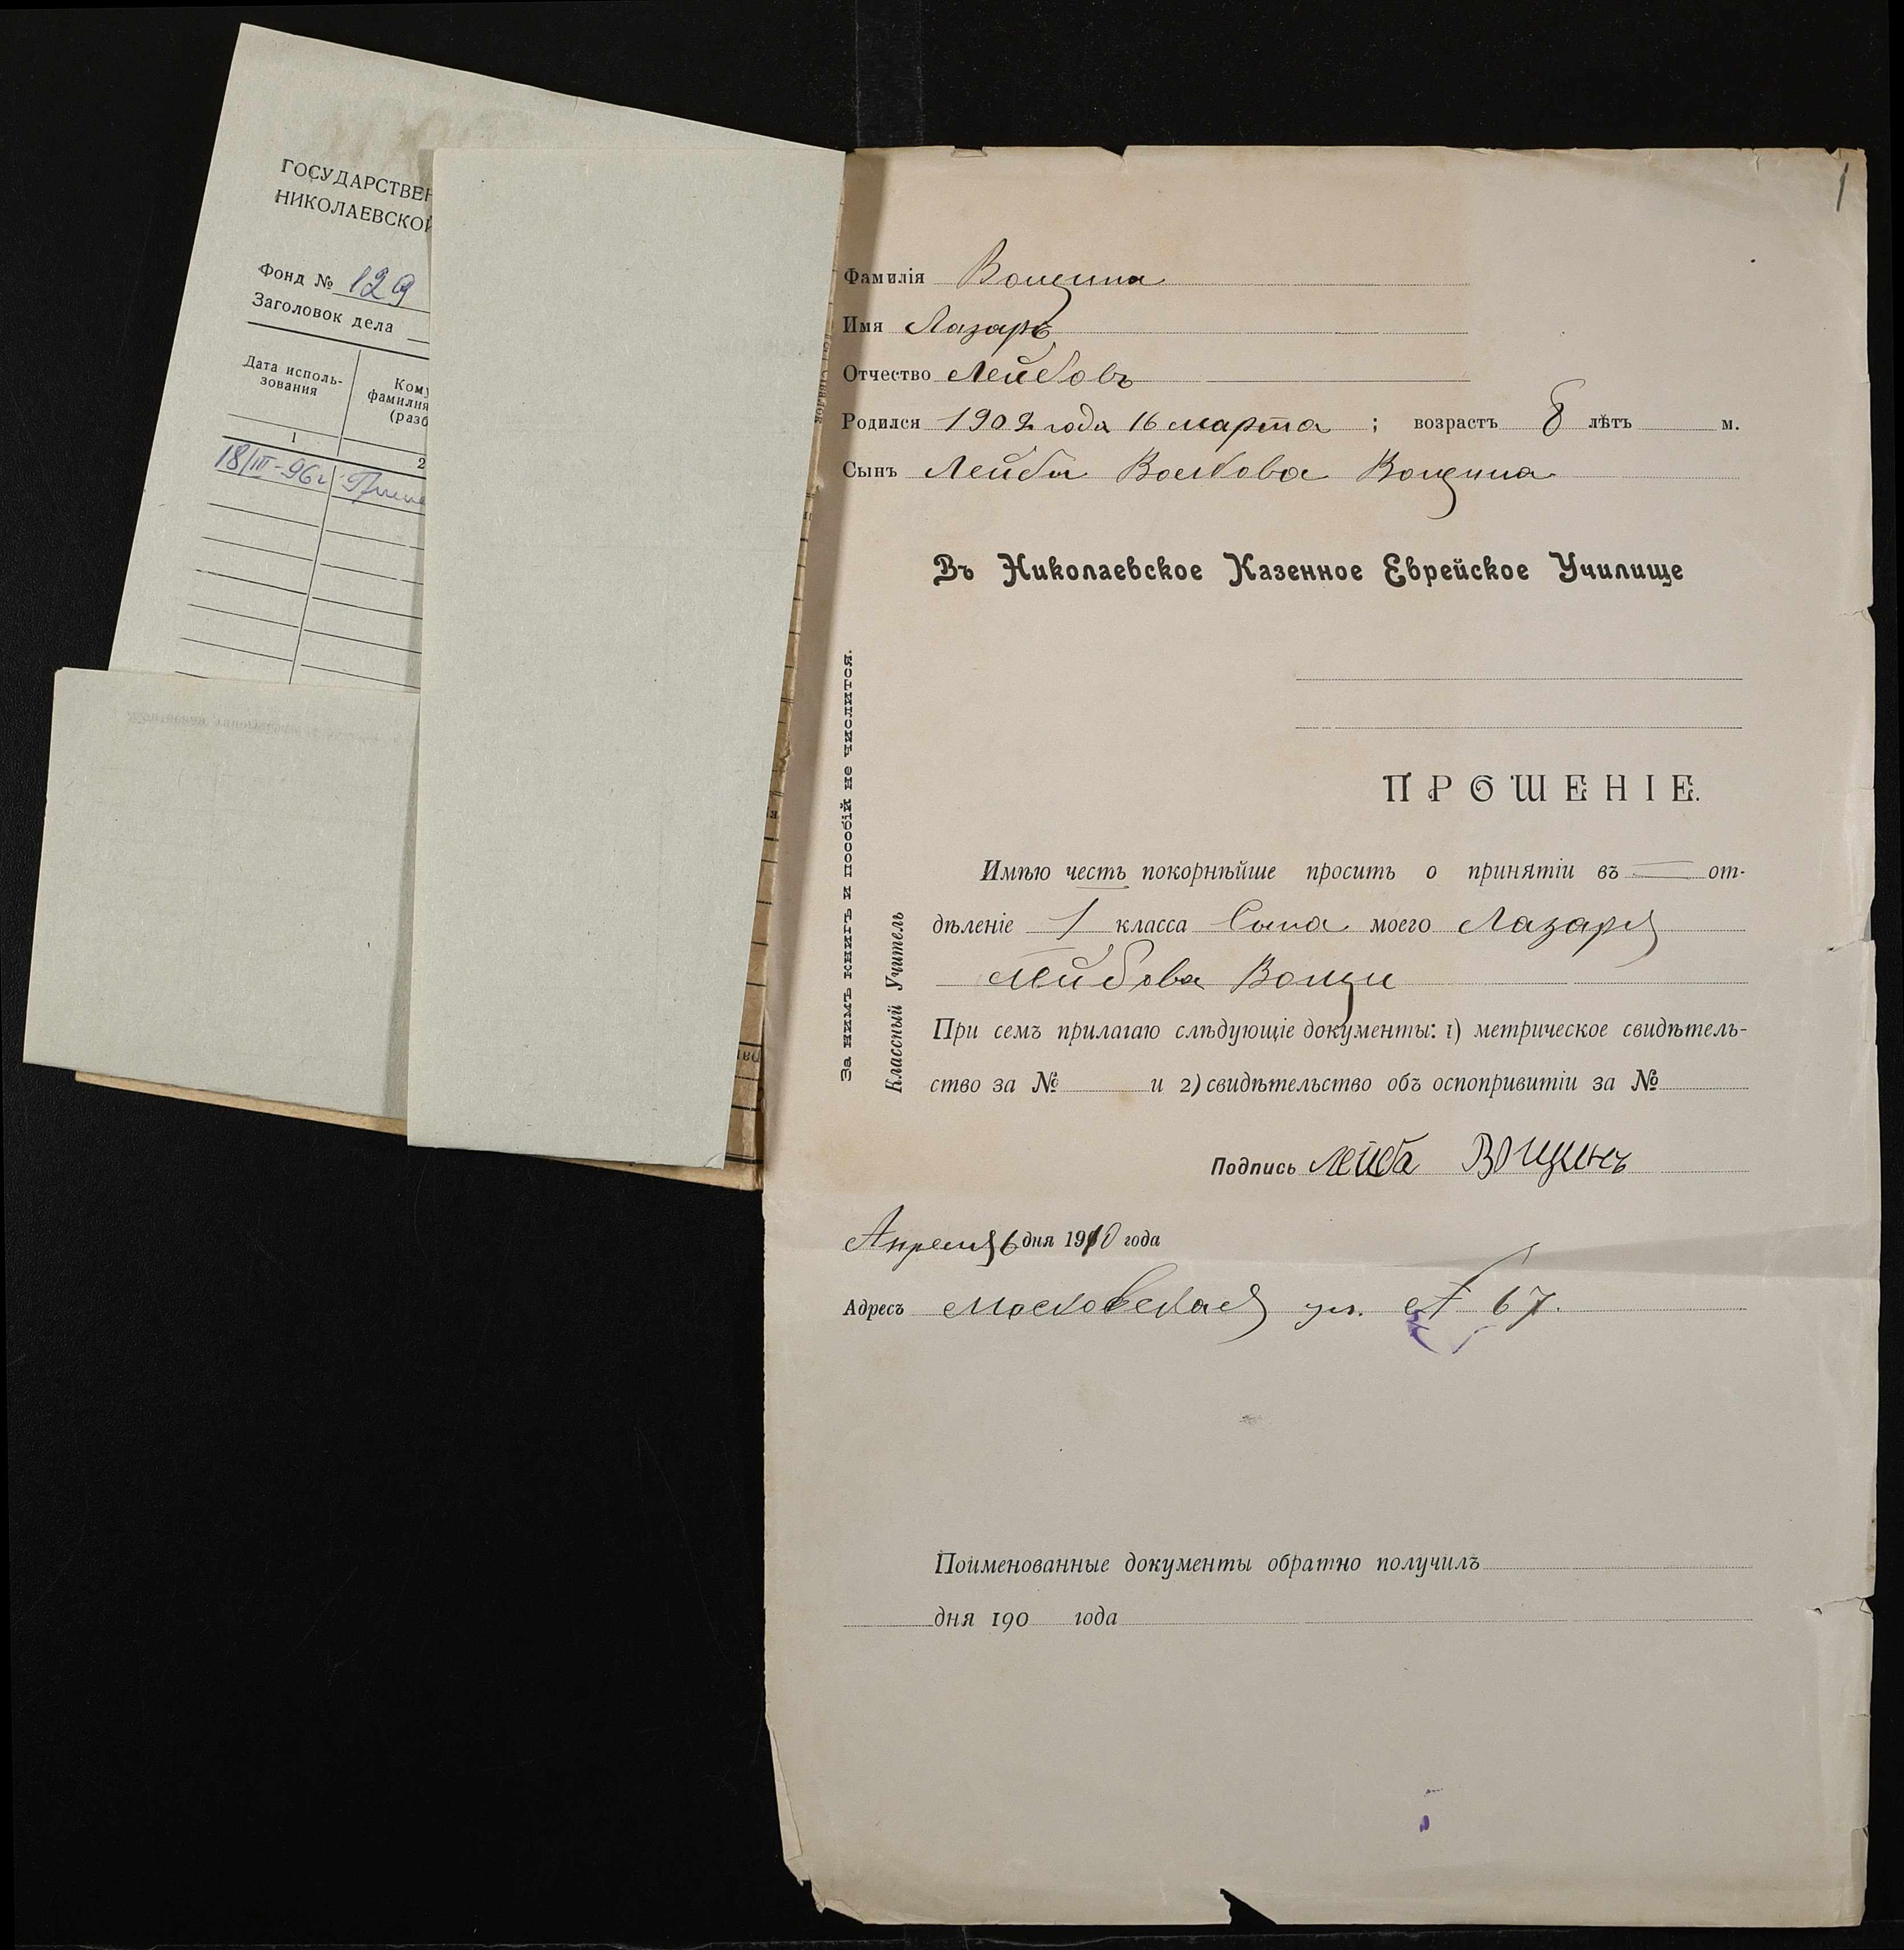 ГОСУДАРСТВЕН
НИКОЛАЕВСКОЙ
Фонд № 129
Заголовок дела
Дата исполь-
зования
Кому
фамилия
(разб
1
2
18/III-96г.
1
Фамилія Вощина
Имя Лазарь
Отчество Лейбовъ
Родился 1902 года 16 марта ; возрастъ 8 лѣтъ м.
Сынъ Лейбы Волькова Вощина
Въ Николаевское Казенное Еврейское Училище
ПРОШЕНІЕ.
Имѣю честь покорнѣйше просить о принятіи въ — от-
дѣленіе 1 класса Сына моего Лазаря
Лейбова Вощи
При семъ прилагаю слѣдующіе документы: 1) метрическое свидѣтель-
ство за № и 2) свидѣтельство объ оспопривитіи за №
Подпись Лейба Вощинъ
Апреля 6 дня 1910 года
Адресъ Московская ул. № 67.
Поименованные документы обратно получилъ
дня 190 года
За нимъ книгъ и пособій не числится.
Классный Учитель